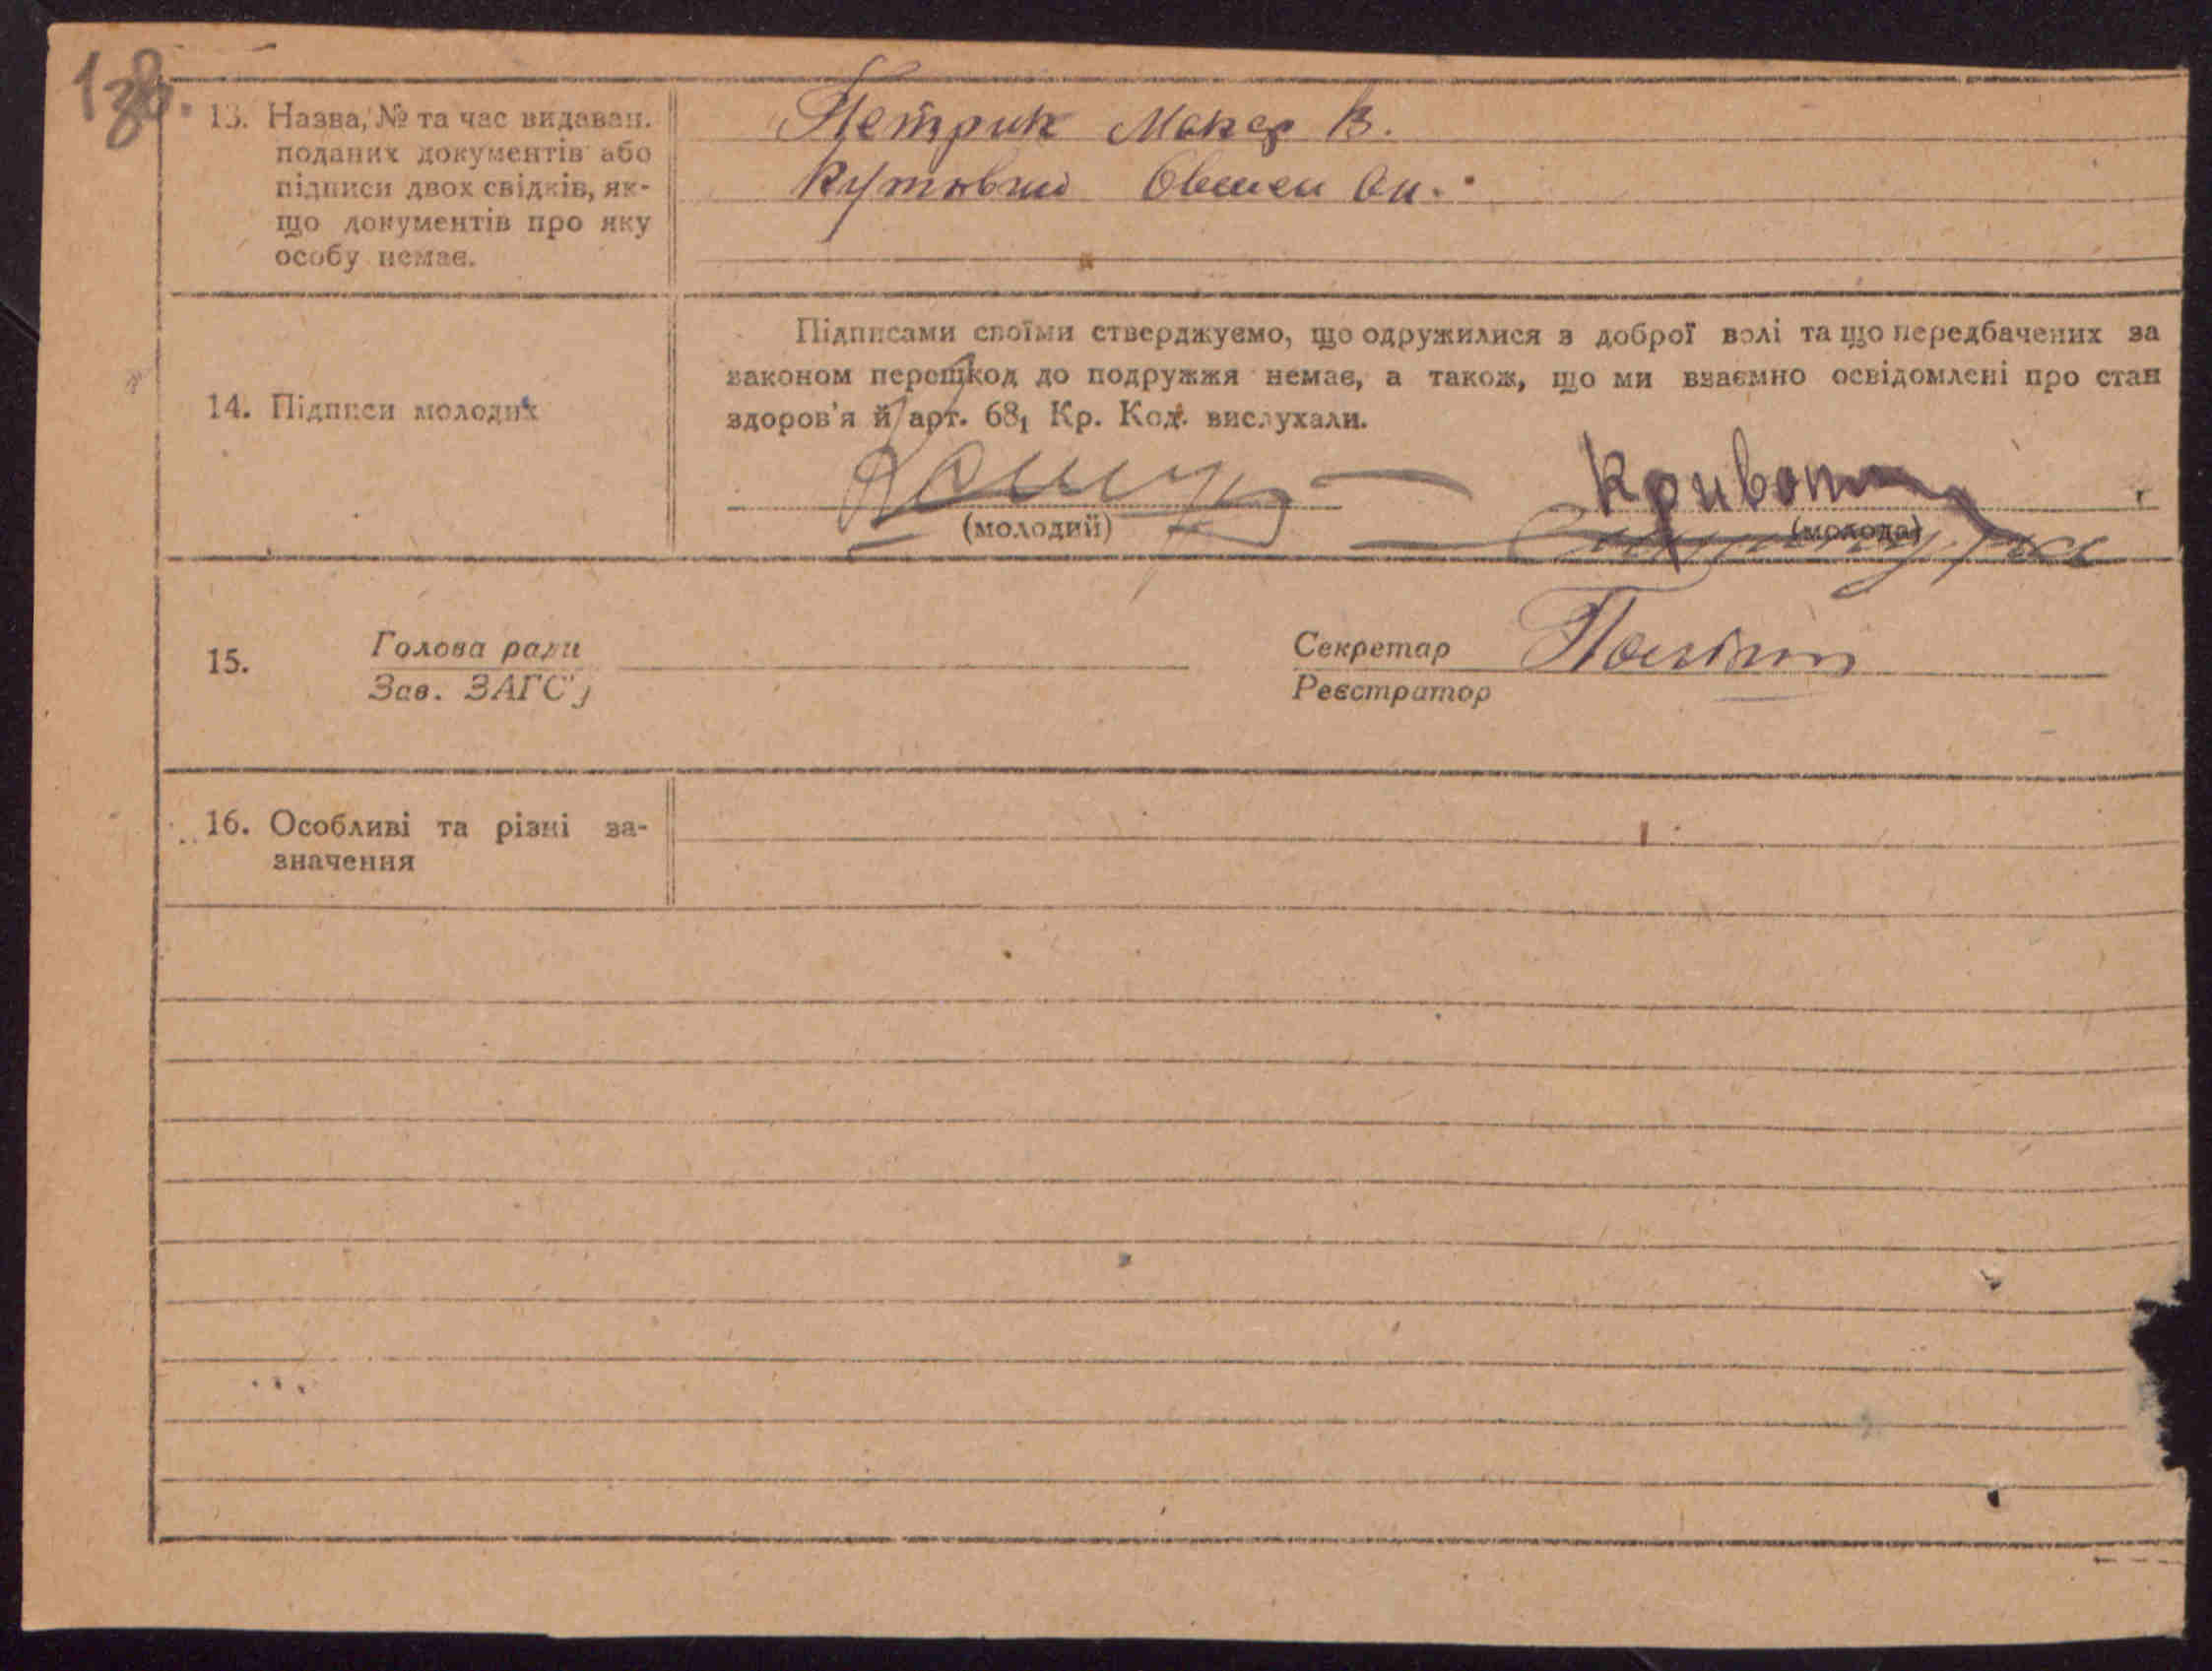 13. Назва, № та час видаван.
поданих документів або
підписи двох свідків, як-
що документів про яку
особу немає.
Петрик Макар В.
Кутовий Овсій Ан.
14. Підписи молодих
Підписами своїми стверджуємо, що одружилися з доброї волі та що передбачених за
законом перешкод до подружжя немає, а також, що ми взаємно освідомлені про стан
здоров'я й арт. 68₁ Кр. Код. вислухали.
(молодий)
(молода)
15.
Голова ради
Зав. ЗАГС'у
Секретар
Реєстратор
16. Особливі та різні за-
значення